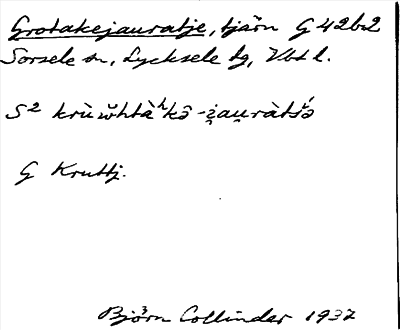 Grotakejauratje, tjärn G42b2
Sorsele sn, Lycksele lg, Vbt l.
S² krùw̆htàʰkō̂-i̯au̯ràtšə́
G Kruttj.
Björn Collinder 1937